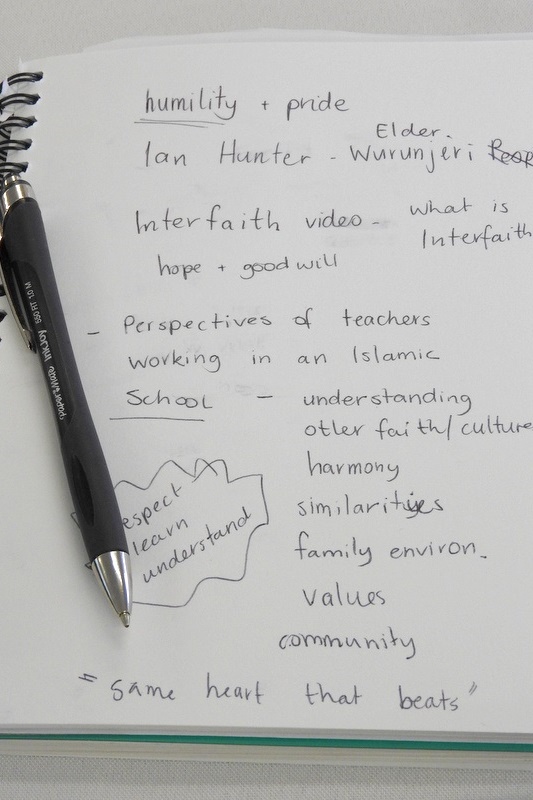 humility + pride
Elder.
Ian Hunter - Wurunjeri
Interfaith video - what is
Interfaith
hope + goodwill
- Perspectives of teachers
working in an Islamic
School - understanding
otler faith/culture
harmony
similarities
family environ.
values
community
espect
learn
understand
"same heart that beats"
papermate InkJoy 550 RT 1.0 M